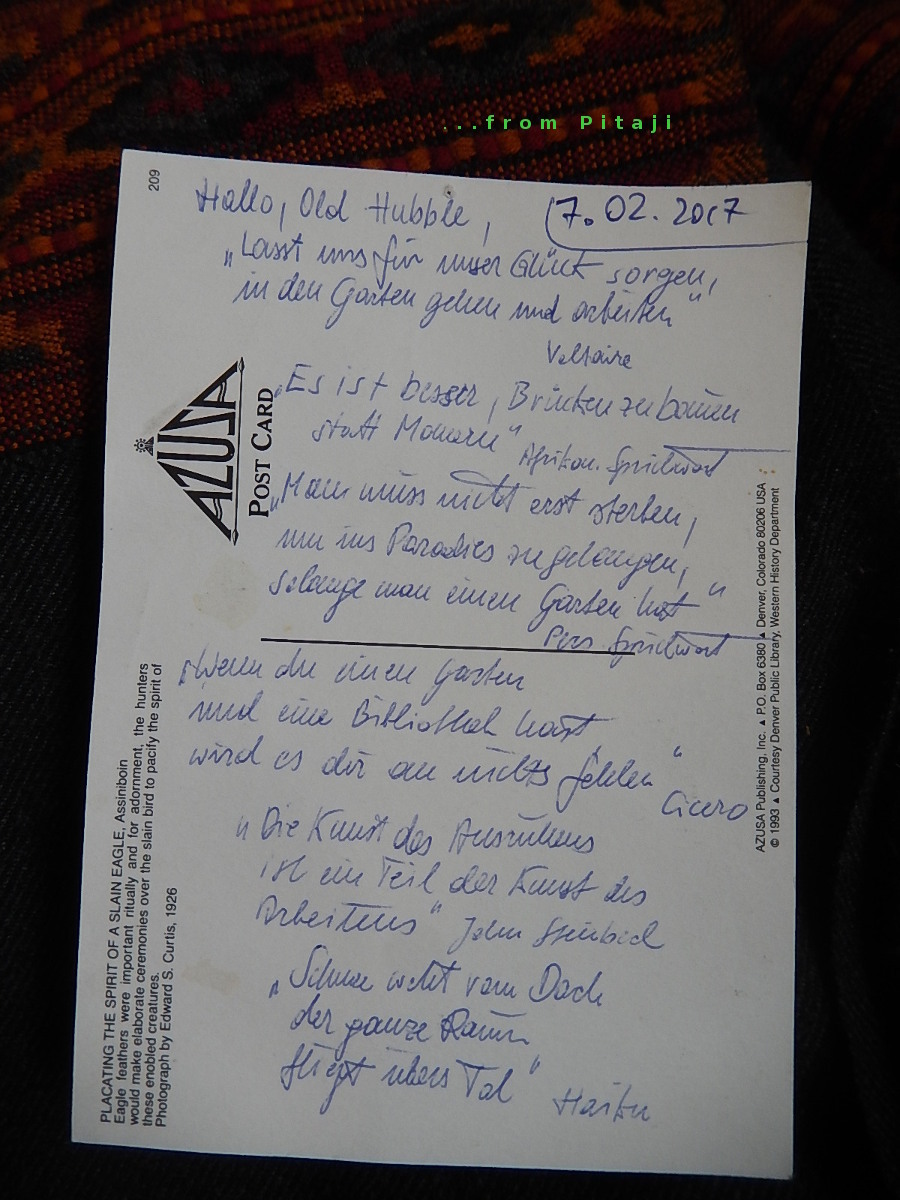 ...from Pitaji
209
Hallo, Old Hubble,
7.02.2017
„Lasst uns für unser Glück sorgen,
in den Garten gehen und arbeiten"
Voltaire
„Es ist besser, Brücken zu bauen
statt Mauern"
Afrikan. Sprichwort
„Man muss nicht erst sterben,
um ins Paradies zu gelangen,
solange man einen Garten hat"
Pers. Sprichwort
„Wenn du einen Garten
und eine Bibliothek hast
wird es dir an nichts fehlen"
Cicero
„Die Kunst des Ausruhens
ist ein Teil der Kunst des
Arbeitens" John Steinbeck
„Schnee weht vom Dach
der ganze Raum
fliegt übers Tal"
Haiku
AZUSA
POST CARD
PLACATING THE SPIRIT OF A SLAIN EAGLE, Assiniboin
Eagle feathers were important ritually and for adornment, the hunters
would make elaborate ceremonies over the slain bird to pacify the spirit of
these enobled creatures.
Photograph by Edward S. Curtis, 1926
AZUSA Publishing, Inc. ▲ P.O. Box 6380 ▲ Denver, Colorado 80206 USA
© 1993 ▲ Courtesy Denver Public Library, Western History Department